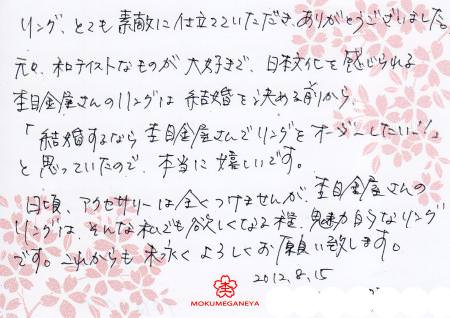 リング、とても素敵に仕立てていただき、ありがとうございました。
元々、和テイストなものが大好きで、日本文化を感じられる
杢目金屋さんのリングは結婚を決める前から、
「結婚するなら杢目金屋さんでリングをオーダーしたい！」
と思っていたので、本当に嬉しいです。
日頃、アクセサリーは全くつけませんが、杢目金屋さんの
リングは、そんな私でも欲しくなる程、魅力的なリング
です。これからも末永くよろしくお願い致します。
2012.8.15
MOKUMEGANEYA